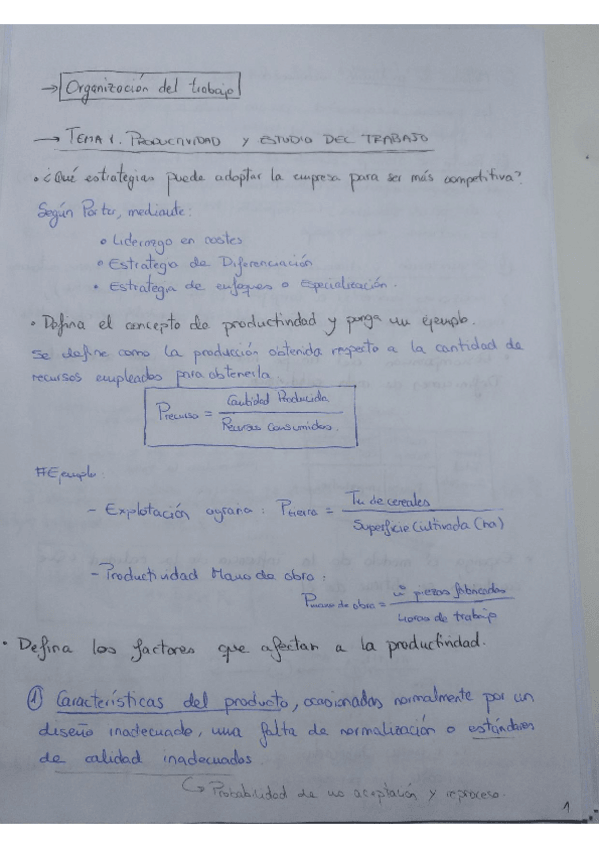 → Organización del trabajo
→ TEMA 1. PRODUCTIVIDAD Y ESTUDIO DEL TRABAJO
• ¿Qué estrategias puede adoptar la empresa para ser más competitiva?
Según Porter, mediante:
• Liderazgo en costes
• Estrategia de Diferenciación
• Estrategia de enfoques o Especialización.
• Defina el concepto de productividad y ponga un ejemplo.
Se define como la producción obtenida respecto a la cantidad de
recursos empleados para obtenerla.
Precurso = Cantidad Producida / Recursos Consumidos
#Ejemplo:
- Explotación agraria: Ptierra = Tn de cereales / Superficie Cultivada (ha)
- Productividad Mano de obra:
Pmano de obra = nº piezas fabricadas / Horas de trabajo
• Defina los factores que afectan a la productividad.
① Características del producto, ocasionadas normalmente por un
diseño inadecuado, una falta de normalización o estándares
de calidad inadecuados.
↳ Probabilidad de no aceptación y reproceso.
1